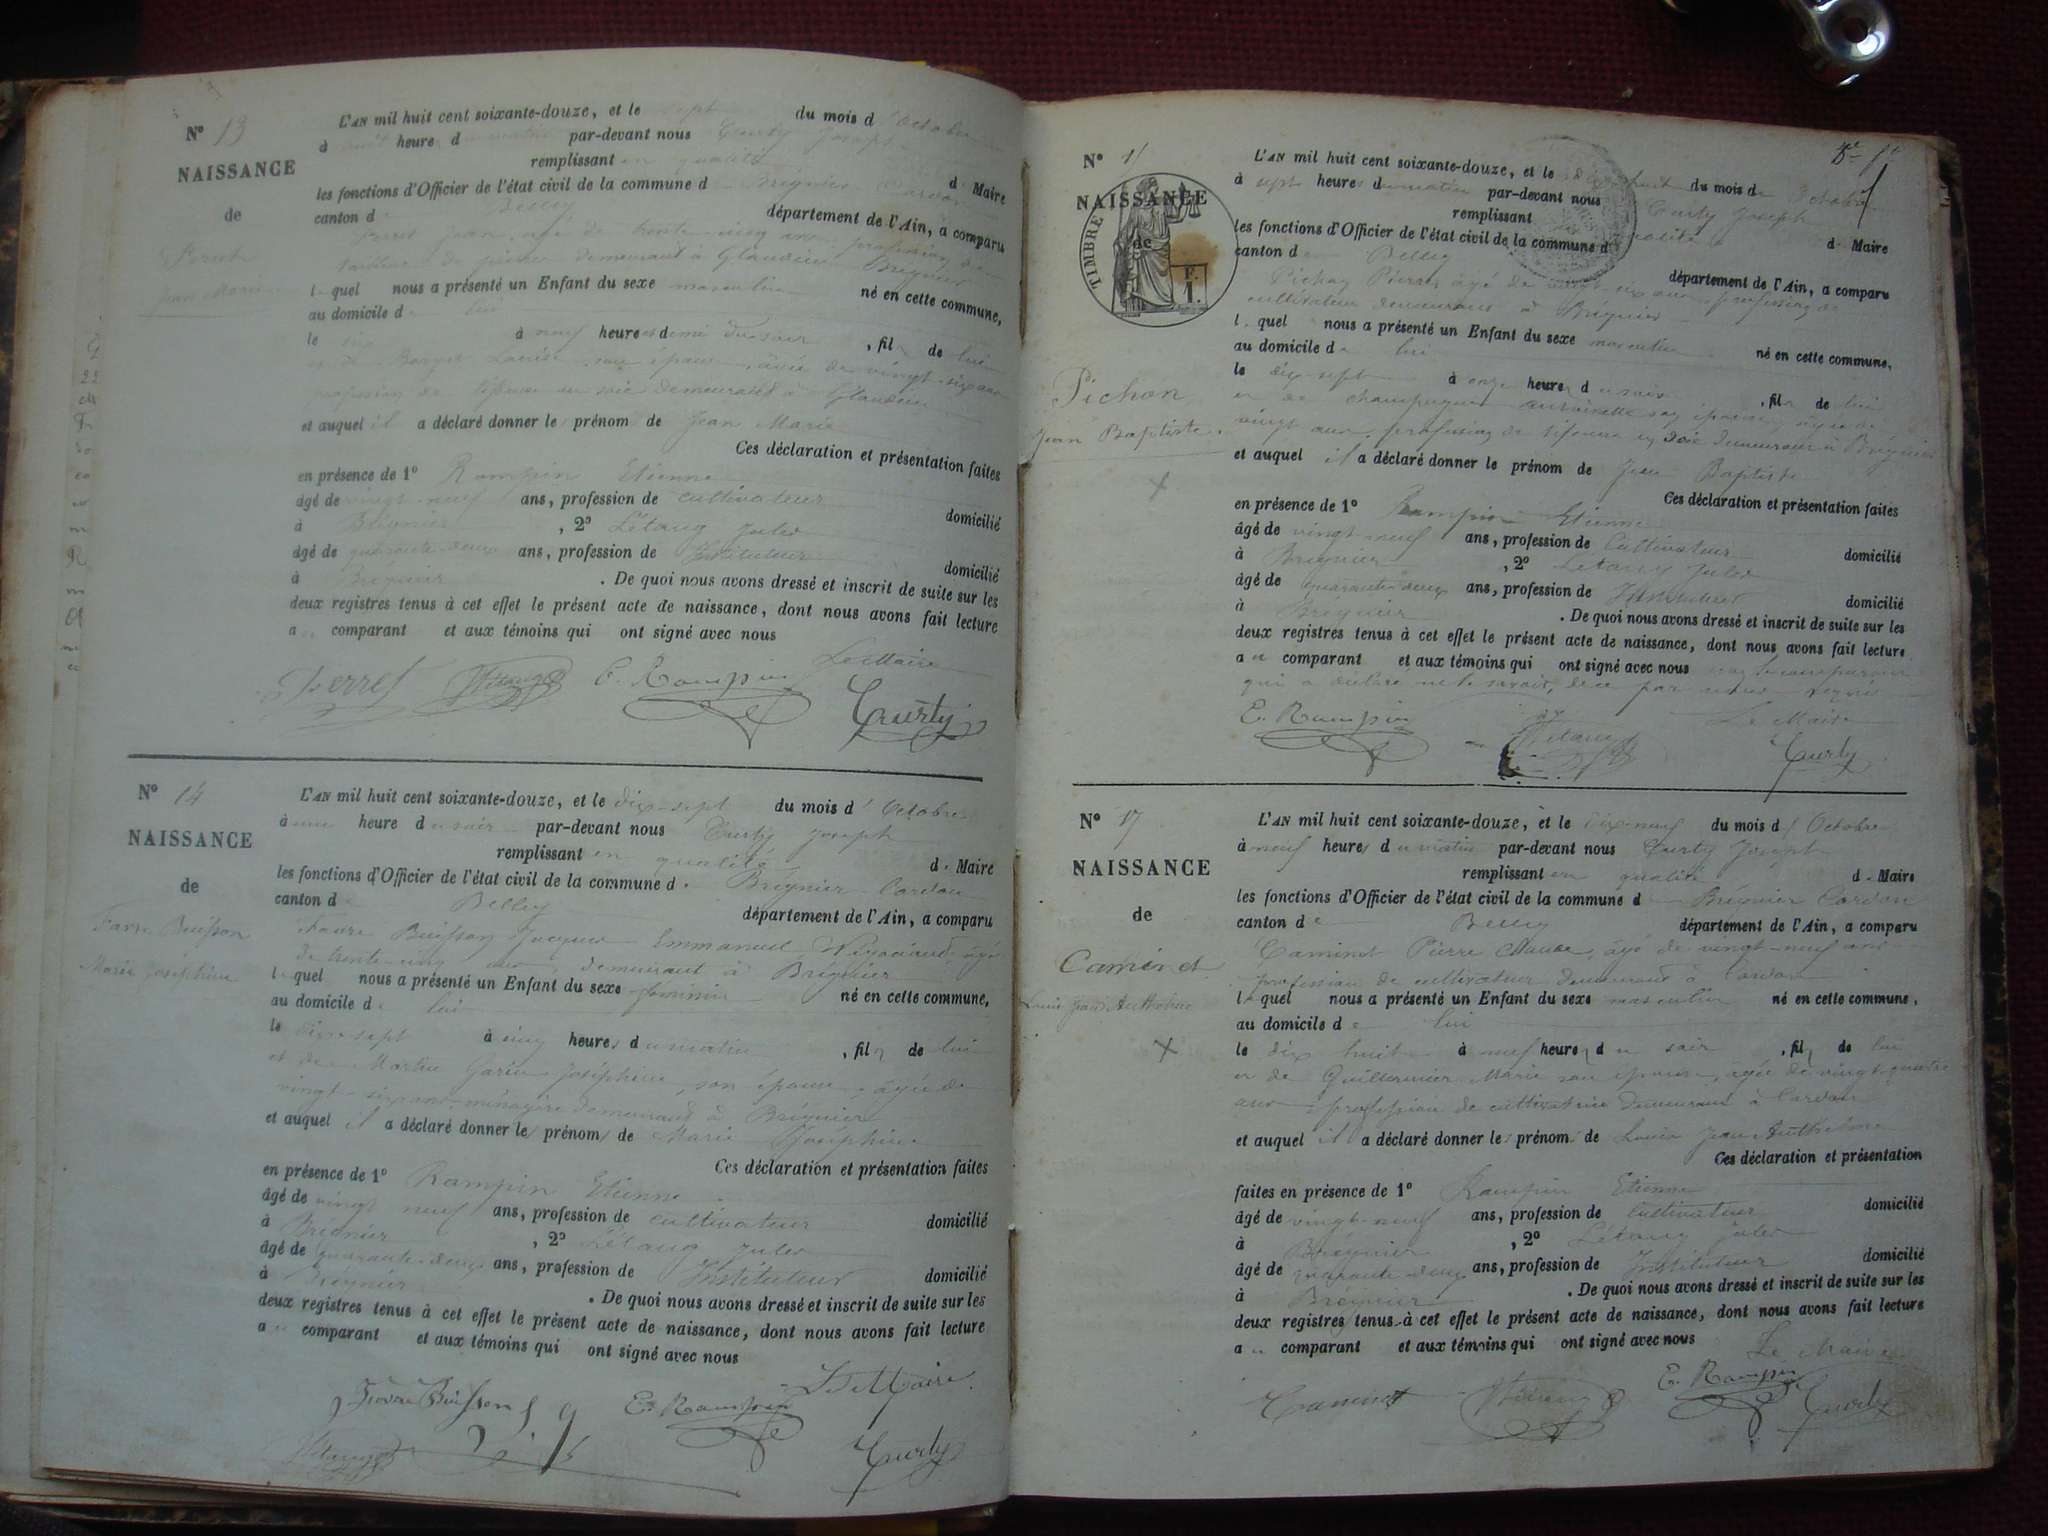 N° 13
NAISSANCE
de
Jean Marie
L'AN mil huit cent soixante-douze, et le sept du mois d'Octobre
à huit heure d par-devant nous Curty Joseph
remplissant en qualité d Maire
les fonctions d'Officier de l'état civil de la commune d Brégnier Cordon
canton d Belley département de l'Ain, a comparu
Perret Jean, agé de trente cinq ans, profession de
tailleur de pierre demeurant à Glandieu Brégnier
lequel nous a présenté un Enfant du sexe masculin né en cette commune,
au domicile de lui
le six à neuf heures demi du soir, fils de lui
et de Louise son épouse, âgée de vingt-six ans
profession de tisseuse en soie demeurant à Glandieu
et auquel il a déclaré donner le prénom de Jean Marie
Ces déclaration et présentation faites
en présence de 1° Rampin Etienne
âgé de vingt-neuf ans, profession de cultivateur domicilié
à Brégnier, 2° Létang Jules
âgé de quarante-deux ans, profession de Instituteur domicilié
à Brégnier. De quoi nous avons dressé et inscrit de suite sur les
deux registres tenus à cet effet le présent acte de naissance, dont nous avons fait lecture
au comparant et aux témoins qui ont signé avec nous
Le Maire
Perret Létang E. Rampin Curty
N° 14
NAISSANCE
de
Favre Buisson
Marie Joséphine
L'AN mil huit cent soixante-douze, et le dix-sept du mois d'Octobre
à une heure du soir par-devant nous Curty Joseph
remplissant en qualité de Maire
les fonctions d'Officier de l'état civil de la commune d Brégnier Cordon
canton de Belley département de l'Ain, a comparu
Favre Buisson Jacques Emmanuel âgé
de trente-cinq ans, demeurant à Brégnier
lequel nous a présenté un Enfant du sexe féminin né en cette commune,
au domicile de lui
le dix-sept à cinq heures du matin, fille de lui
et de Martin Garin Joséphine, son épouse, âgée de
vingt-six ans ménagère demeurant à Brégnier
et auquel il a déclaré donner les prénoms de Marie Joséphine
Ces déclaration et présentation faites
en présence de 1° Rampin Etienne
âgé de vingt neuf ans, profession de cultivateur domicilié
à Brégnier, 2° Létang Jules
âgé de quarante-deux ans, profession de Instituteur domicilié
à Brégnier. De quoi nous avons dressé et inscrit de suite sur les
deux registres tenus à cet effet le présent acte de naissance, dont nous avons fait lecture
au comparant et aux témoins qui ont signé avec nous
Le Maire
Favre Buisson E. Rampin
Létang Curty
N°
NAISSANCE
de
TIMBRE
F.
1.
Pichon
Jean Baptiste
L'AN mil huit cent soixante-douze, et le dix-huit du mois d Octobre
à sept heures du matin par-devant nous Curty Joseph
remplissant qualité d Maire
les fonctions d'Officier de l'état civil de la commune d
canton de Belley département de l'Ain, a comparu
Pichon Pierre, âgé de vingt six ans, profession de
cultivateur demeurant à Brégnier
lequel nous a présenté un Enfant du sexe masculin né en cette commune,
au domicile de lui
le dix-sept à onze heures du soir, fils de lui
et de Antoinette son épouse, âgée de
vingt ans, profession de tisseuse en soie demeurant à Brégnier
et auquel il a déclaré donner le prénom de Jean Baptiste
Ces déclaration et présentation faites
en présence de 1° Rampin Etienne
âgé de vingt neuf ans, profession de Cultivateur domicilié
à Brégnier, 2° Létang Jules
âgé de quarante-deux ans, profession de Instituteur domicilié
à Brégnier. De quoi nous avons dressé et inscrit de suite sur les
deux registres tenus à cet effet le présent acte de naissance, dont nous avons fait lecture
au comparant et aux témoins qui ont signé avec nous non le comparant
qui a déclaré ne le savoir, de ce par nous requis
E. Rampin Létang Le Maire
Curty
N° 17
NAISSANCE
de
Caminet
Louis Jean Anthelme
L'AN mil huit cent soixante-douze, et le dix-neuf du mois d'Octobre
à neuf heures du matin par-devant nous Curty Joseph
remplissant en qualité de Maire
les fonctions d'Officier de l'état civil de la commune d Brégnier Cordon
canton de Belley département de l'Ain, a comparu
Caminet Pierre âgé de vingt-neuf ans
profession de cultivateur demeurant à Cordon
lequel nous a présenté un Enfant du sexe masculin né en cette commune,
au domicile de lui
le dix huit à neuf heures du soir, fils de lui
et de Guillermier Marie son épouse, agée de vingt-quatre
ans, profession de cultivatrice demeurant à Cordon
et auquel il a déclaré donner les prénoms de Louis Jean Anthelme
Ces déclaration et présentation
faites en présence de 1° Rampin Etienne
âgé de vingt-neuf ans, profession de Cultivateur domicilié
à Brégnier, 2° Létang Jules
âgé de quarante-deux ans, profession de Instituteur domicilié
à Brégnier. De quoi nous avons dressé et inscrit de suite sur les
deux registres tenus à cet effet le présent acte de naissance, dont nous avons fait lecture
au comparant et aux témoins qui ont signé avec nous
Le Maire
Caminet Létang E. Rampin Curty